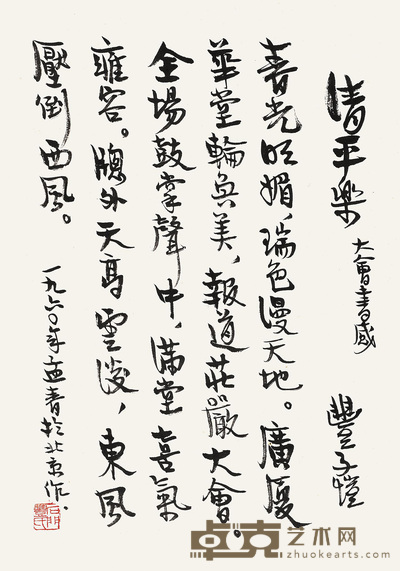 清平樂 大會書感 豐子愷
春光明媚,瑞色漫天地。廣廈
華堂輪奐美,報道莊嚴大會。
全場鼓掌聲中,滿堂喜氣
雍容。牕外天高雲淡,東風
壓倒西風。
一九六〇年孟春於北京作.
卓克艺术网
zhuokearts.com